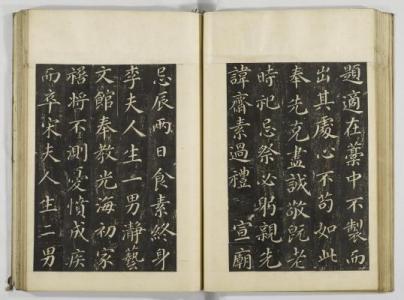 題適在藁中不製而
出其處心不苟如此
奉先克盡誠敬旣老
時祀忌祭必躬親先
諱齋素過禮　宣廟
忌辰兩日食素終身
李夫人生一男瀞藝
文館奉教光海初家
禍將不測憂憤成疾
而卒宋夫人生二男